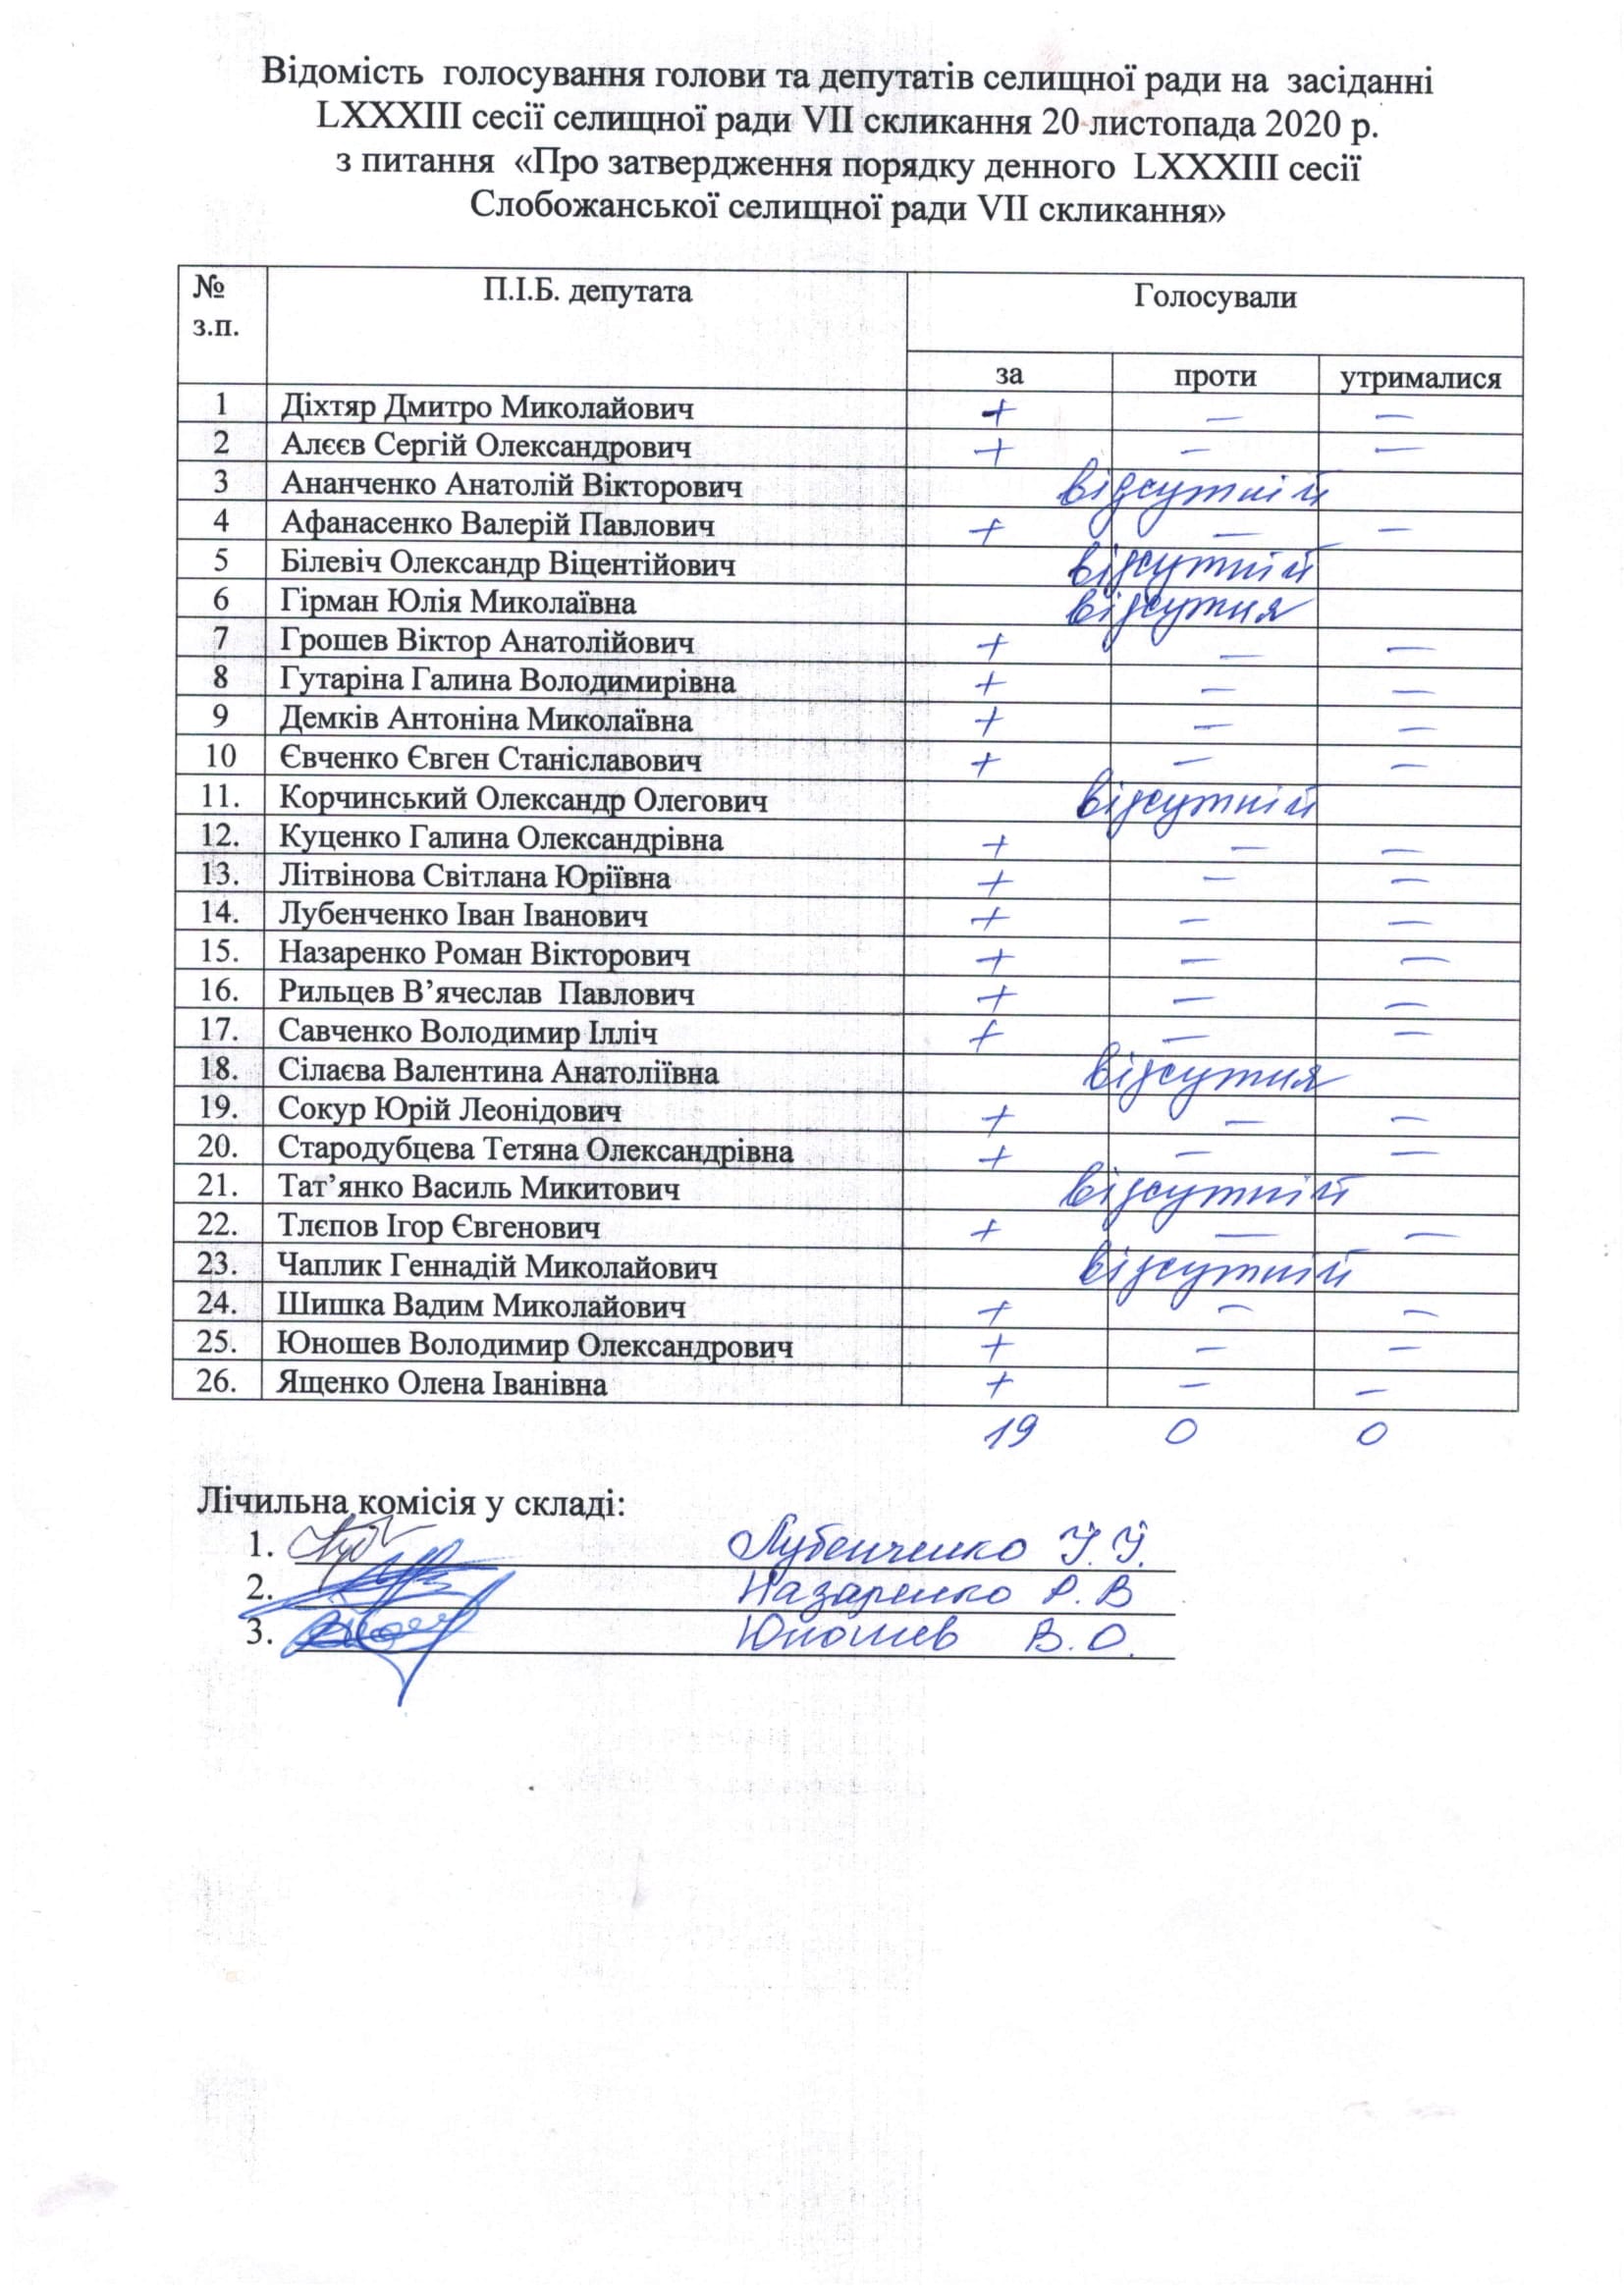 Відомість голосування голови та депутатів селищної ради на засіданні
LXXXIII сесії селищної ради VII скликання 20 листопада 2020 р.
з питання «Про затвердження порядку денного LXXXIII сесії
Слобожанської селищної ради VII скликання»
№ з.п. П.І.Б. депутата Голосували
за проти утрималися
1 Діхтяр Дмитро Миколайович + — —
2 Алєєв Сергій Олександрович + — —
3 Ананченко Анатолій Вікторович відсутній
4 Афанасенко Валерій Павлович + — —
5 Білевіч Олександр Віцентійович відсутній
6 Гірман Юлія Миколаївна відсутня
7 Грошев Віктор Анатолійович + — —
8 Гутаріна Галина Володимирівна + — —
9 Демків Антоніна Миколаївна + — —
10 Євченко Євген Станіславович + — —
11. Корчинський Олександр Олегович відсутній
12. Куценко Галина Олександрівна + — —
13. Літвінова Світлана Юріївна + — —
14. Лубенченко Іван Іванович + — —
15. Назаренко Роман Вікторович + — —
16. Рильцев В’ячеслав Павлович + — —
17. Савченко Володимир Ілліч + — —
18. Сілаєва Валентина Анатоліївна відсутня
19. Сокур Юрій Леонідович + — —
20. Стародубцева Тетяна Олександрівна + — —
21. Тат’янко Василь Микитович відсутній
22. Тлєпов Ігор Євгенович + — —
23. Чаплик Геннадій Миколайович відсутній
24. Шишка Вадим Миколайович + — —
25. Юношев Володимир Олександрович + — —
26. Ященко Олена Іванівна + — —
19 0 0
Лічильна комісія у складі:
1. Лубенченко І.І.
2. Назаренко Р.В
3. Юношев В.О.